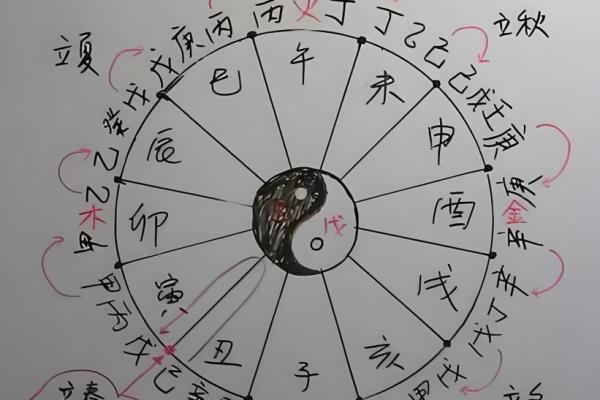 立夏
立秋
戊庚丙
丙火丁
丁乙己
己戊壬庚
庚金辛
辛丁戊
戊甲
己辛
戊丙甲
甲木乙
乙癸戊
巳
午
未
申
酉
戌
亥
子
丑
寅
卯
辰
戊
立春